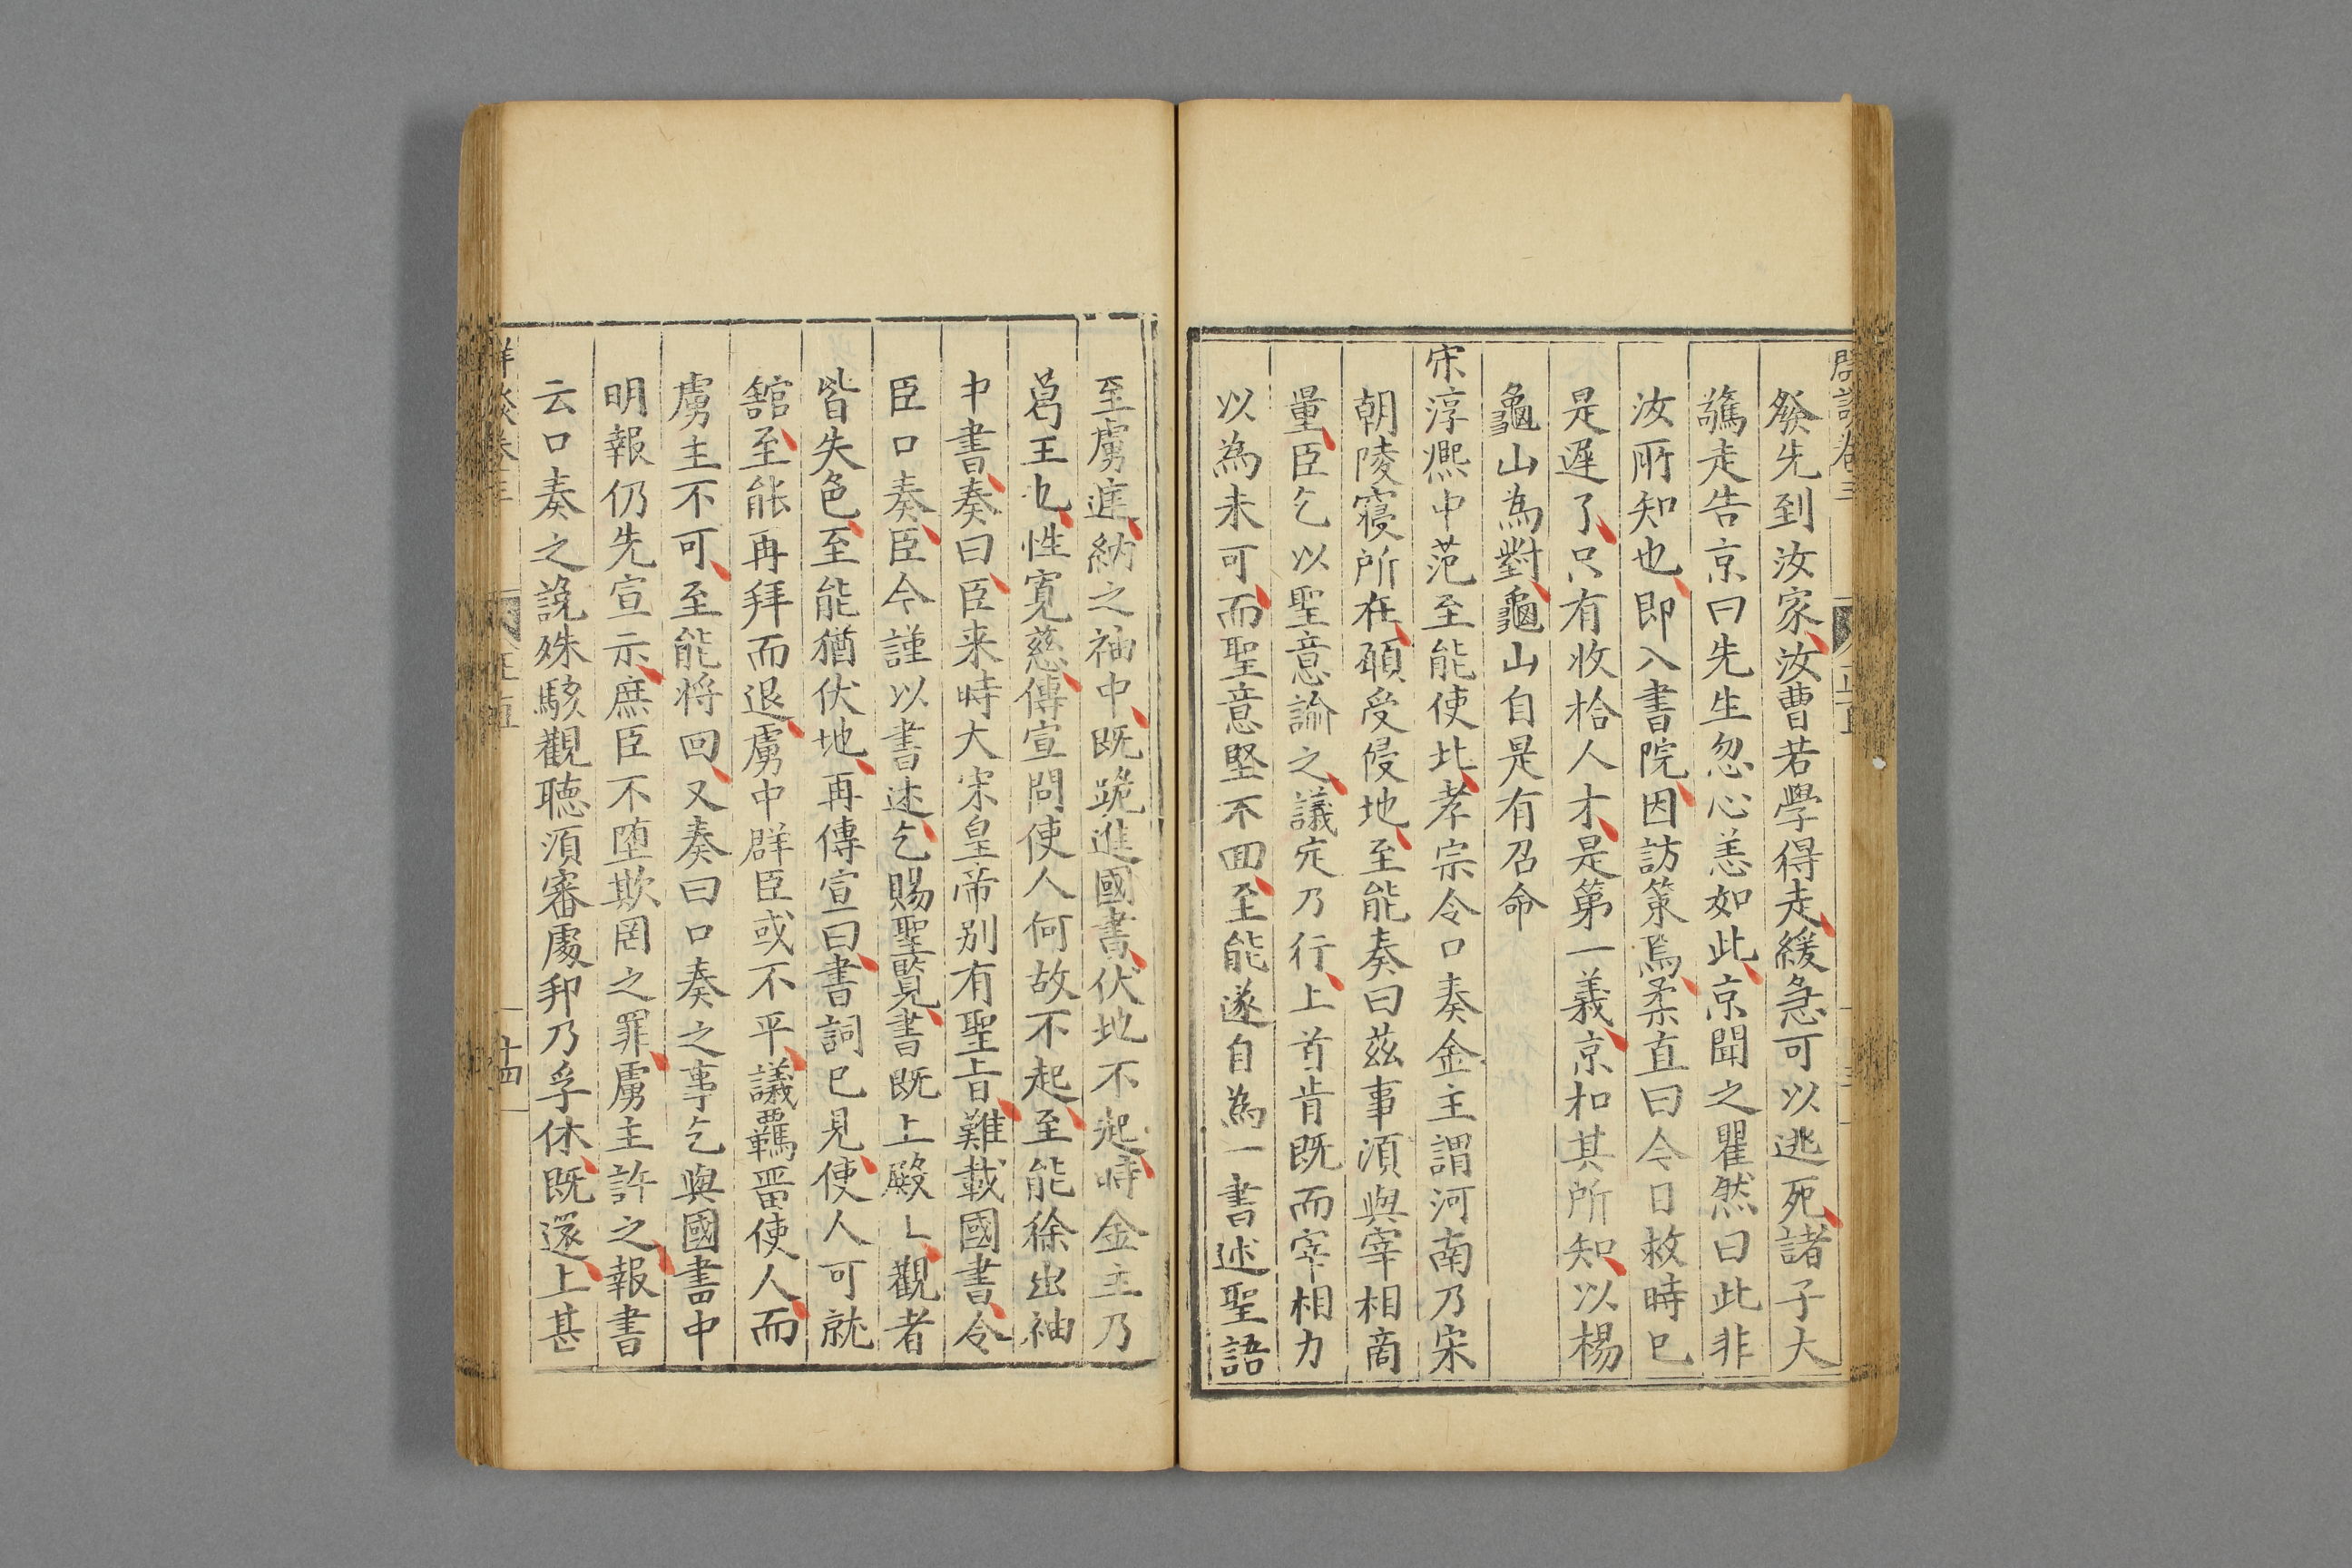 發先到汝家汝曹若學得走緩急可以逃死諸子大
驚走告京曰先生忽心恙如此京聞之瞿然曰此非
汝所知也即入書院因訪策焉柔直曰今日救時已
是遲了只有收拾人才是第一義京扣其所知以楊
龜山為對龜山自是有召命
宋淳熙中范至能使北孝宗令口奏金主謂河南乃宋
朝陵寢所在願受侵地至能奏曰茲事湏與宰相商
量臣乞以聖意諭之議定乃行上首肯既而宰相力
以為未可而聖意堅不回至能遂自為一書述聖語
至虜庭納之袖中既跪進國書伏地不起時金主乃
葛王也性寬慈傳宣問使人何故不起至能徐出袖
中書奏曰臣来時大宋皇帝别有聖旨難載國書令
臣口奏臣今謹以書述乞賜聖覧書既上殿上觀者
皆失色至能猶伏地再傳宣曰書詞已見使人可就
舘至能再拜而退虜中群臣或不平議羈畱使人而
虜主不可至能将回又奏曰口奏之事乞與國書中
明報仍先宣示庶臣不堕欺罔之罪虜主許之報書
云口奏之說殊駭觀聴湏審處邦乃孚休既還上甚
十四